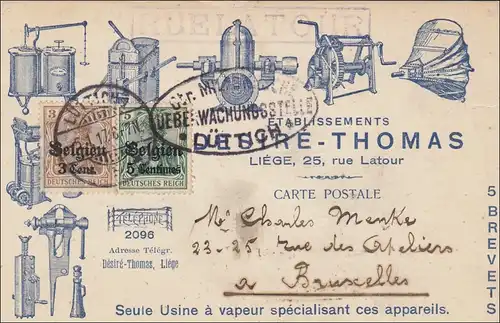 RUE LATOUR
ÜBERWACHUNGSSTELLE
LÜTTICH
3 5
Belgien Belgien
3 Cent. 5 Centimes
DEUTSCHES REICH DEUTSCHES REICH
ÉTABLISSEMENTS
DÉSIRÉ-THOMAS
LIÉGE, 25, rue Latour
CARTE POSTALE
TÉLÉPHONE
2096
Adresse Télégr.
Désiré-Thomas, Liége
Mr Charles Menke
23-25, rue des Ateliers
à Bruxelles
5 BREVETS
Seule Usine à vapeur spécialisant ces appareils.